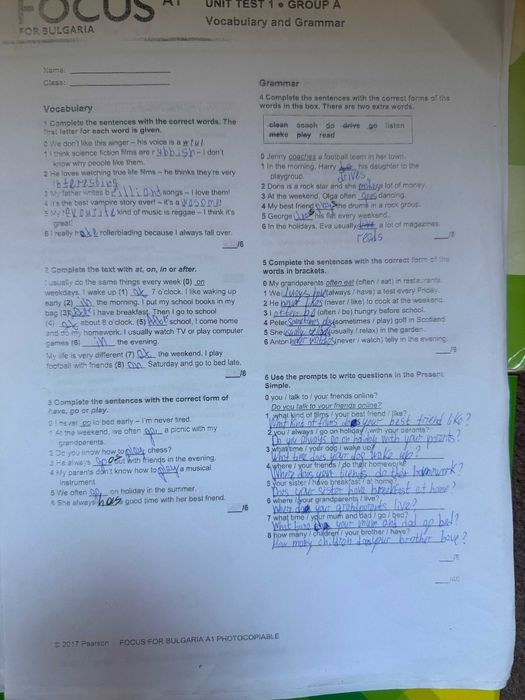 FOCUS A1
FOR BULGARIA
UNIT TEST 1 • GROUP A
Vocabulary and Grammar
Name:
Class:
Vocabulary
1 Complete the sentences with the correct words. The
first letter for each word is given.
0 We don't like this singer – his voice is awful.
1 I think science fiction films are rubbish – I don't
know why people like them.
2 He loves watching true life films – he thinks they're very
interesting
3 My father writes brilliant songs – I love them!
4 It's the best vampire story ever! – it's awesome
5 My favourite kind of music is reggae – I think it's
great!
6 I really hate rollerblading because I always fall over.
/6
2 Complete the text with at, on, in or after.
I usually do the same things every week (0) on
weekdays. I wake up (1) at 7 o'clock. I like waking up
early (2) in the morning. I put my school books in my
bag (3) I have breakfast. Then I go to school
(4) at about 8 o'clock. (5) after school, I come home
and do my homework. I usually watch TV or play computer
games (6) in the evening.
My life is very different (7) at the weekend. I play
football with friends (8) on Saturday and go to bed late.
/8
3 Complete the sentences with the correct form of
have, go or play.
0 I never go to bed early – I'm never tired.
1 At the weekend, we often go a picnic with my
grandparents.
2 Do you know how to play chess?
3 He always goes out with friends in the evening.
4 My parents don't know how to play a musical
instrument.
5 We often go on holiday in the summer.
6 She always has good time with her best friend.
/6
Grammar
4 Complete the sentences with the correct forms of the
words in the box. There are two extra words.
clean coach do drive go listen
make play read
0 Jenny coaches a football team in her town.
1 In the morning, Harry drives his daughter to the
playgroup.
2 Doris is a rock star and she makes a lot of money.
3 At the weekend, Olga often goes dancing.
4 My best friend plays the drums in a rock group.
5 George his flat every weekend.
6 In the holidays, Eva usually a lot of magazines.
reads
/6
5 Complete the sentences with the correct form of the
words in brackets.
0 My grandparents often eat (often / eat) in restaurants.
1 We always have (always / have) a test every Friday.
2 He never likes (never / like) to cook at the weekend.
3 I often be (often / be) hungry before school.
4 Peter sometimes play (sometimes / play) golf in Scotland.
5 She usually relax (usually / relax) in the garden.
6 Anton never watches (never / watch) telly in the evening.
/6
6 Use the prompts to write questions in the Present
Simple.
0 you / talk to / your friends online?
Do you talk to your friends online?
1 what kind of films / your best friend / like?
What kind of films does your best friend like?
2 you / always / go on holiday / with your parents?
Do you always go on holiday with your parents?
3 what time / your dog / wake up?
What time does your dog wake up?
4 where / your friends / do their homework?
Where does your friends do their homework?
5 your sister / have breakfast / at home?
Does your sister have breakfast at home?
6 where / your grandparents / live?
Where does your grandparents live?
7 what time / your mum and dad / go / bed?
What time do your mum and dad go bed?
8 how many / children / your brother / have?
How many children does your brother have?
/8
/40
© 2017 Pearson FOCUS FOR BULGARIA A1 PHOTOCOPIABLE